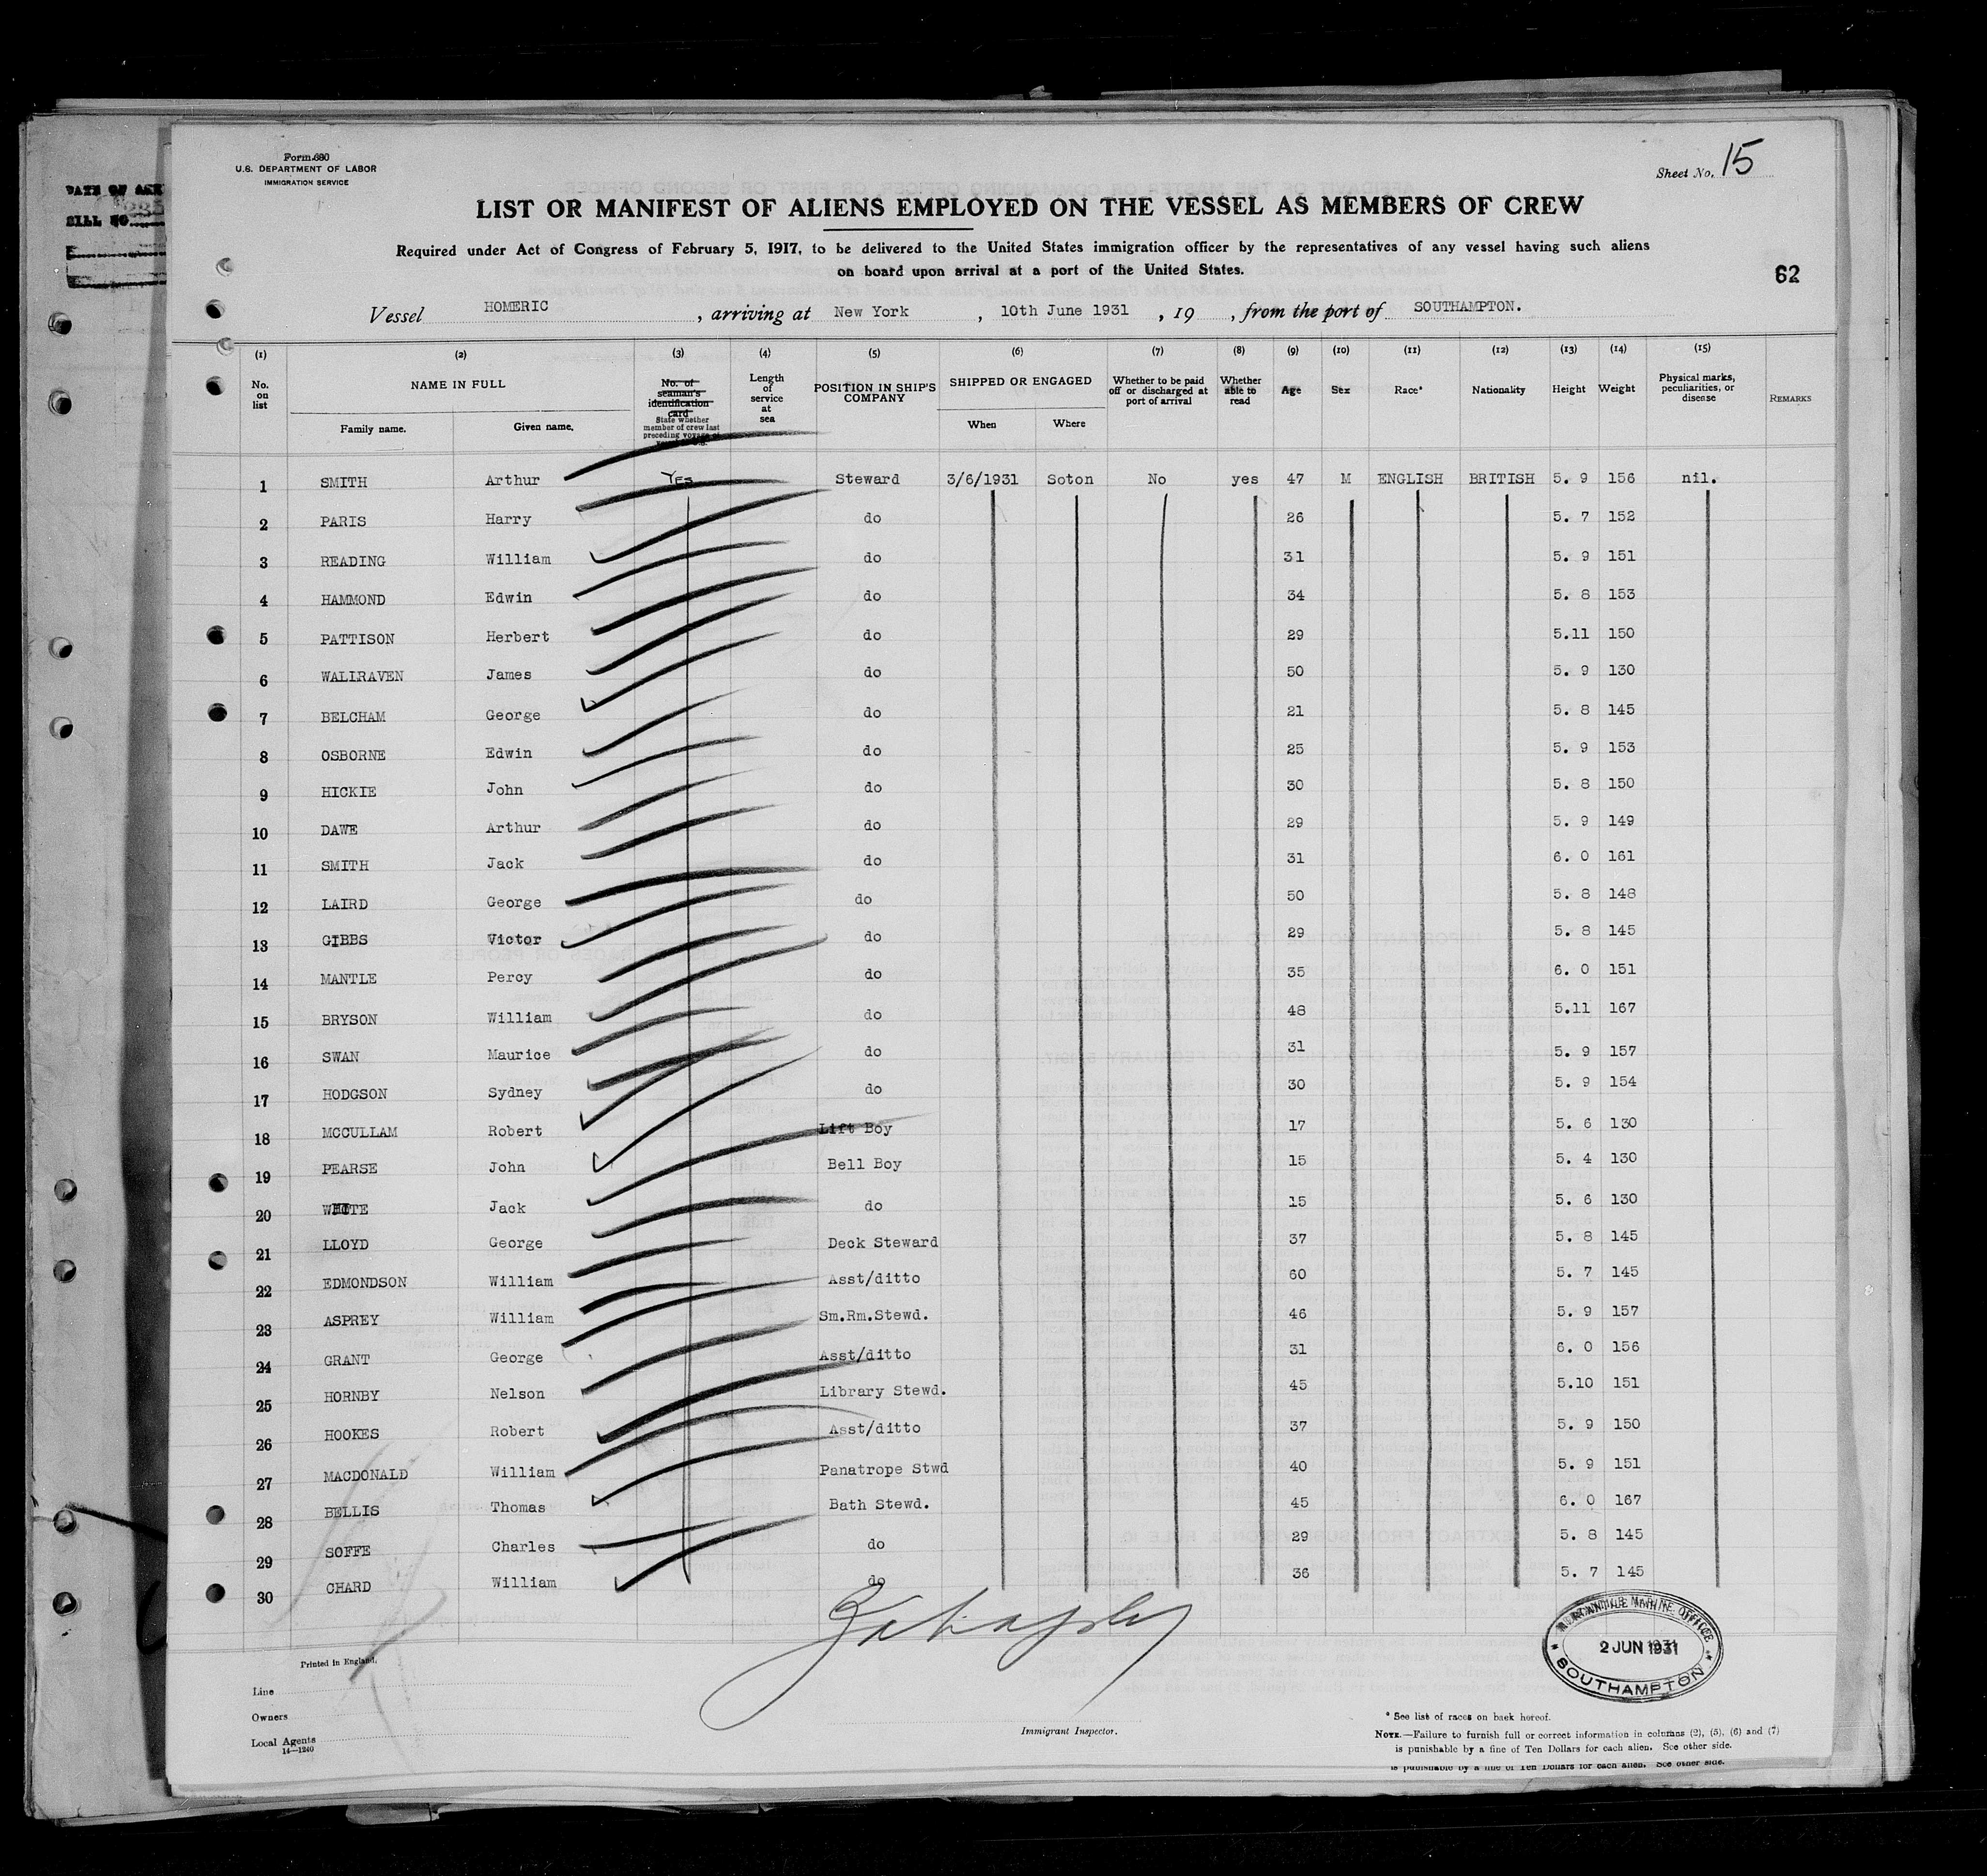 Form 680
U.S. DEPARTMENT OF LABOR
IMMIGRATION SERVICE
Sheet No. 15
LIST OR MANIFEST OF ALIENS EMPLOYED ON THE VESSEL AS MEMBERS OF CREW
Required under Act of Congress of February 5, 1917, to be delivered to the United States immigration officer by the representatives of any vessel having such aliens
on board upon arrival at a port of the United States.
62
Vessel HOMERIC , arriving at New York , 10th June 1931 , 19 , from the port of SOUTHAMPTON.
(1) (2) (3) (4) (5) (6) (7) (8) (9) (10) (11) (12) (13) (14) (15)
No. on list NAME IN FULL Family name. Given name. No. of seaman's identification card State whether member of crew last preceding voyage Length of service at sea POSITION IN SHIP'S COMPANY SHIPPED OR ENGAGED When Where Whether to be paid off or discharged at port of arrival Whether able to read Age Sex Race* Nationality Height Weight Physical marks, peculiarities, or disease REMARKS
1 SMITH Arthur Yes Steward 3/6/1931 Soton No yes 47 M ENGLISH BRITISH 5. 9 156 nil.
2 PARIS Harry do 26 5. 7 152
3 READING William do 31 5. 9 151
4 HAMMOND Edwin do 34 5. 8 153
5 PATTISON Herbert do 29 5.11 150
6 WALLRAVEN James do 50 5. 9 130
7 BELCHAM George do 21 5. 8 145
8 OSBORNE Edwin do 25 5. 9 153
9 HICKIE John do 30 5. 8 150
10 DAWE Arthur do 29 5. 9 149
11 SMITH Jack do 31 6. 0 161
12 LAIRD George do 50 5. 8 148
13 GIBBS Victor do 29 5. 8 145
14 MANTLE Percy do 35 6. 0 151
15 BRYSON William do 48 5.11 167
16 SWAN Maurice do 31 5. 9 157
17 HODGSON Sydney do 30 5. 9 154
18 MCCULLAM Robert Lift Boy 17 5. 6 130
19 PEARSE John Bell Boy 15 5. 4 130
20 WHITE Jack do 15 5. 6 130
21 LLOYD George Deck Steward 37 5. 8 145
22 EDMONDSON William Asst/ditto 60 5. 7 145
23 ASPREY William Sm.Rm.Stewd. 46 5. 9 157
24 GRANT George Asst/ditto 31 6. 0 156
25 HORNBY Nelson Library Stewd. 45 5.10 151
26 HOOKES Robert Asst/ditto 37 5. 9 150
27 MACDONALD William Panatrope Stwd 40 5. 9 151
28 BELLIS Thomas Bath Stewd. 45 6. 0 167
29 SOFFE Charles do 29 5. 8 145
30 CHARD William do 36 5. 7 145
Printed in England.
Line
Owners
Local Agents
14—1240
Immigrant Inspector.
MERCANTILE MARINE OFFICE
2 JUN 1931
SOUTHAMPTON
* See list of races on back hereof.
NOTE.—Failure to furnish full or correct information in columns (2), (5), (6) and (7)
is punishable by a fine of Ten Dollars for each alien. See other side.
is punishable by a fine of Ten Dollars for each alien. See other side.